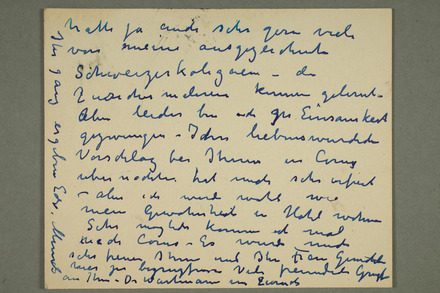 hatte ja auch sehr gern viele
von meine ausgezeichnete
Schweizerkollegen – die
Zürcher kennen gelernt.
Aber leider bin ich zur Einsamkeit
gezwungen – Ihr liebenswürdiger
Vorschlag bei Ihnen in
übernachten hat mich sehr erfreut
– aber ich werde wohl wie
mein Gewohnheit in Hotel wohnen
Sehr möglich komme ich mal
nach – Es würde mich
sehr freuen Ihnen und Ihre Frau
mal zu begrüssen Viele freundliche Grüsse
an Ihnen – Dr in Zürich
Ihr ganz ergebener Edv. Munch